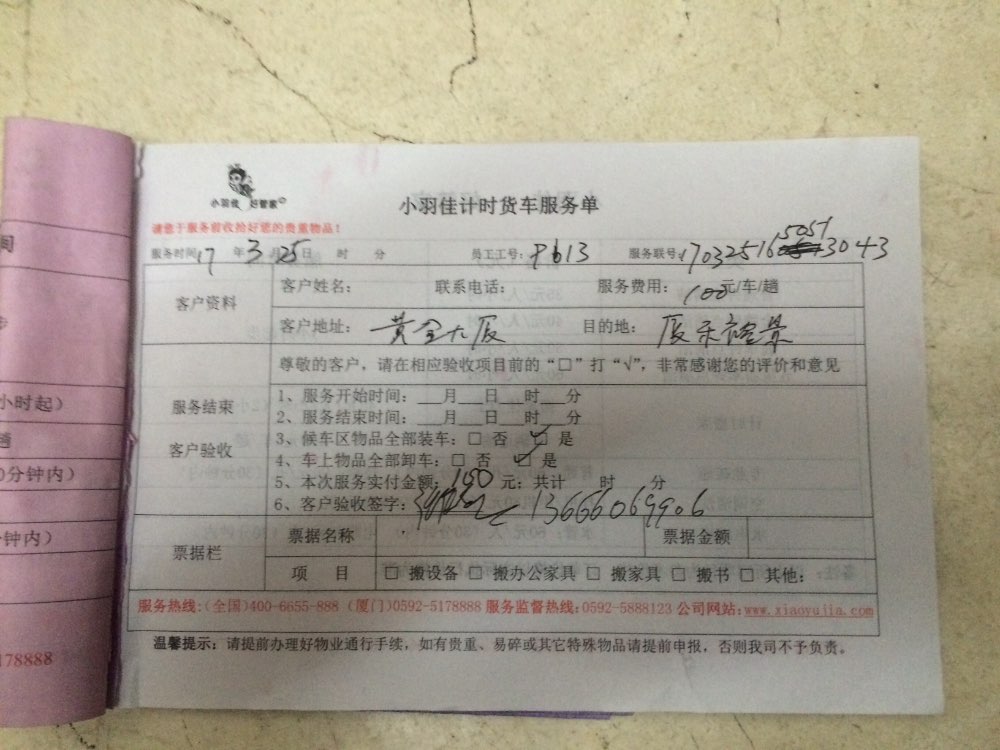 小羽佳 好管家
小羽佳计时货车服务单
请您于服务前收拾好您的贵重物品！
服务时间 17 年 3 月 25 日 时 分 员工工号：P613 服务联号：170325165051 3043
客户资料
客户姓名： 联系电话： 服务费用：100元/车/趟
客户地址：黄金大厦 目的地：厦禾裕景
尊敬的客户，请在相应验收项目前的“□”打“√”，非常感谢您的评价和意见
服务结束
客户验收
1、服务开始时间：___月___日___时___分
2、服务结束时间：___月___日___时___分
3、候车区物品全部装车：□ 否 ☑ 是
4、车上物品全部卸车：□ 否 ☑ 是
5、本次服务实付金额：100 元；共计 时 分
6、客户验收签字： 13666069906
票据栏
票据名称 票据金额
项 目 □ 搬设备 □ 搬办公家具 □ 搬家具 □ 搬书 □ 其他：
服务热线：(全国)400-6655-888 (厦门)0592-5178888 服务监督热线：0592-5888123 公司网站：www.xiaoyujia.com
温馨提示：请提前办理好物业通行手续，如有贵重、易碎或其它特殊物品请提前申报，否则我司不予负责。
间
小时起）
趟
0分钟内）
钟内）
178888